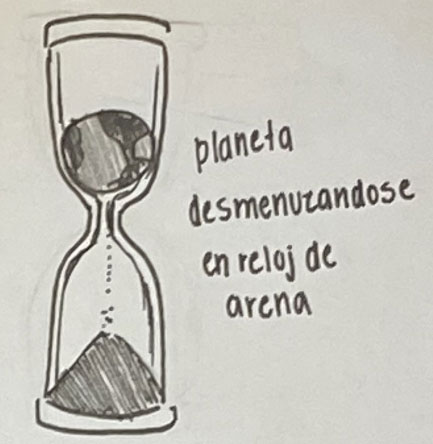 planeta
desmenuzandose
en reloj de
arena